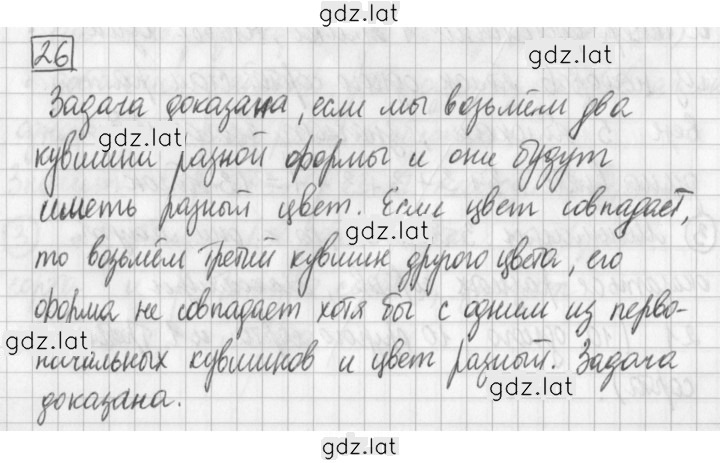 gdz.lat
26
gdz.lat
Задача доказана, если мы возьмём два
gdz.lat
кувшина разной формы и они будут
иметь разный цвет. Если цвет совпадает,
gdz.lat
то возьмём третий кувшин другого цвета, его
форма не совпадает хотя бы с одним из перво-
gdz.lat
начальных кувшинов и цвет разный. Задача
gdz.lat
доказана.
gdz.lat